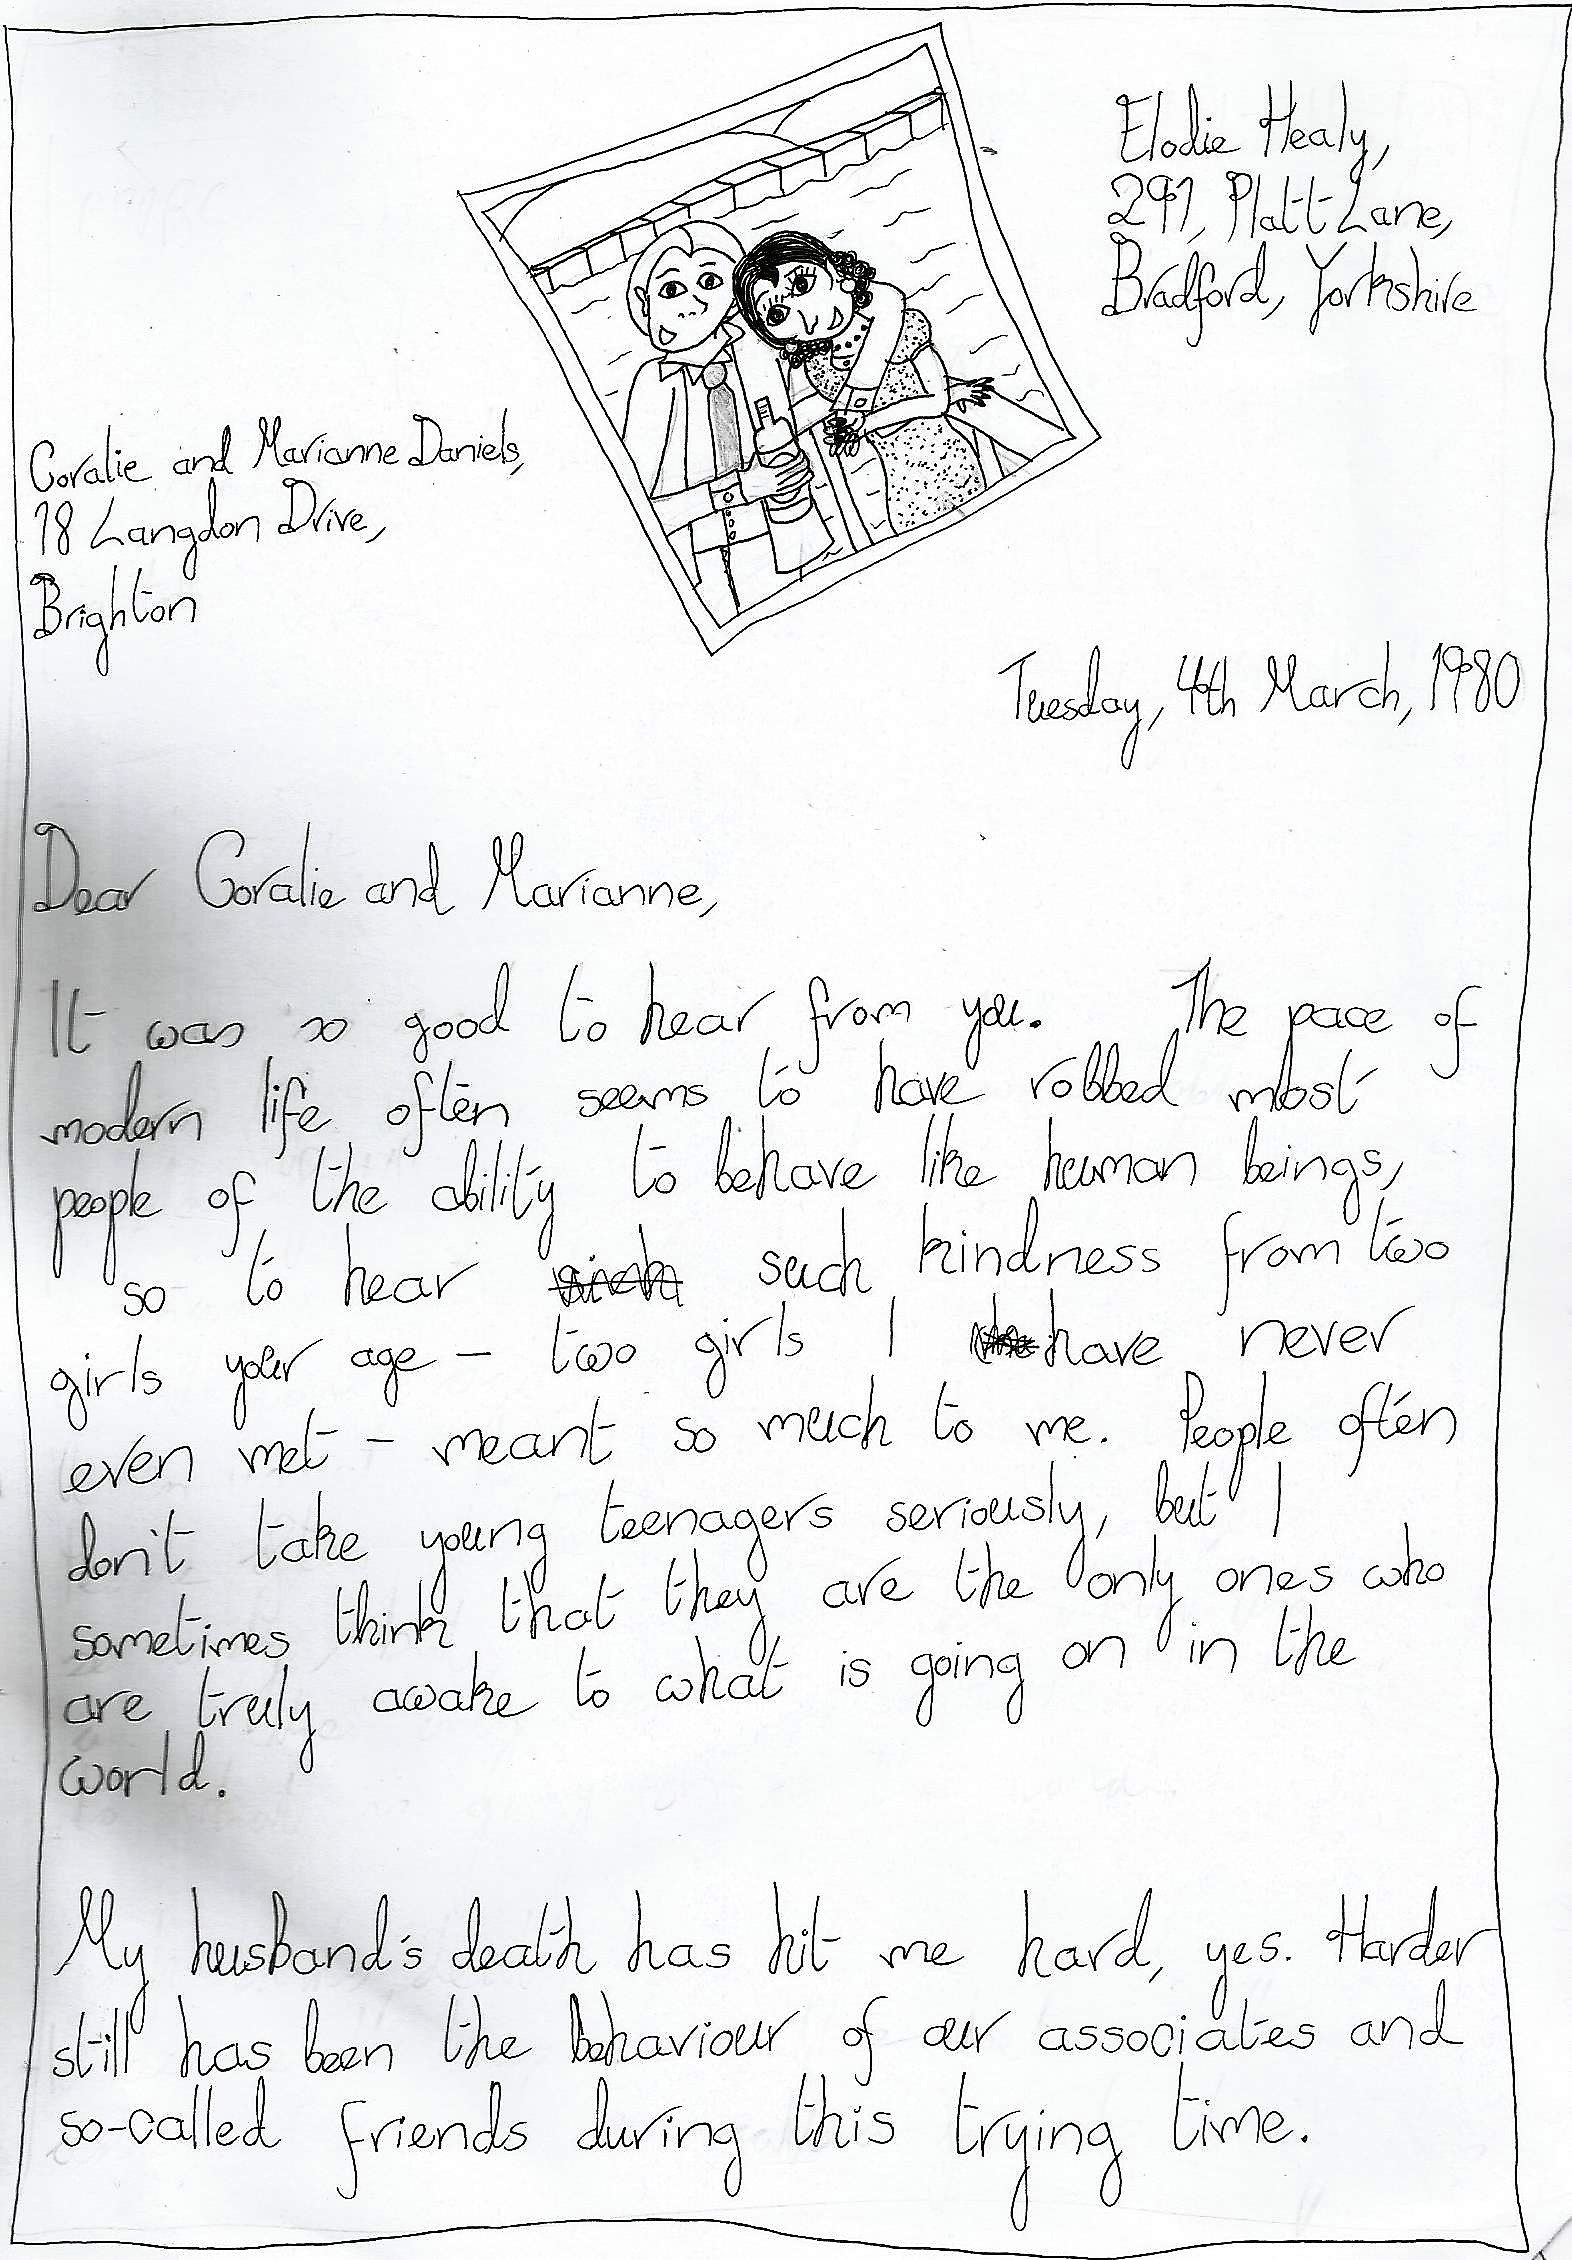 Elodie Healy,
291, Platt Lane,
Bradford, Yorkshire
Coralie and Marianne Daniels,
18 Langdon Drive,
Brighton
Tuesday, 4th March, 1980
Dear Coralie and Marianne,
It was so good to hear from you. The pace of
modern life often seems to have robbed most
people of the ability to behave like human beings,
so to hear such kindness from two
girls your age – two girls I have never
even met – meant so much to me. People often
don't take young teenagers seriously, but I
sometimes think that they are the only ones who
are truly awake to what is going on in the
world.
My husband's death has hit me hard, yes. Harder
still has been the behaviour of our associates and
so-called friends during this trying time.